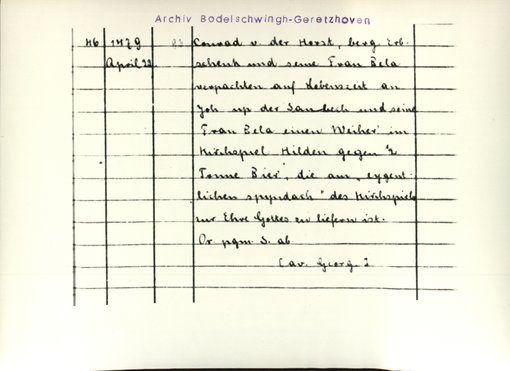 Archiv Bodelschwingh-Geretzhoven
46 1479 23 Conrad v. der Horst, berg. Erb-
April 22 schenk und seine Frau Bela
verpachten auf Lebenszeit an
Joh. up der Sandbech und seine
Frau Bela einen Weiher im
Kirchspiel Hilden gegen "2
Tonne Bier", die am "eygent-
lichen spyndach" des Kirchspiels
zur Ehre Gottes zu liefern ist.
Or. pgm. S. ab.
Cav. Georg. I